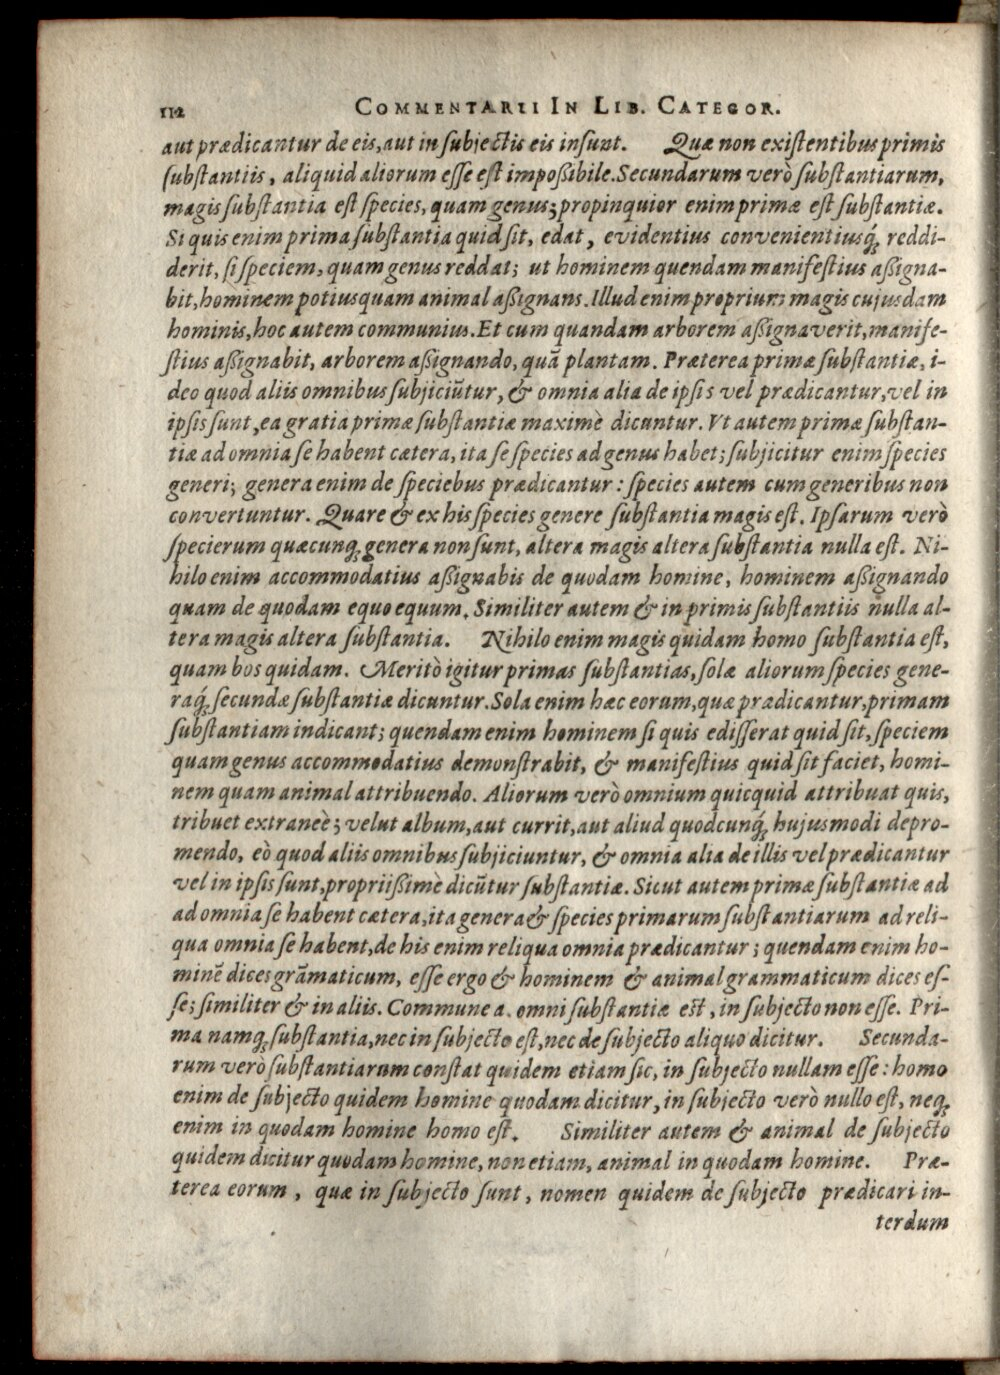 112 COMMENTARII IN LIB. CATEGOR.
aut prædicantur de eis, aut in ſubjectis eis inſunt. Quæ non exiſtentibus primis
ſubſtantiis, aliquid aliorum eſſe eſt impoßibile. Secundarum verò ſubſtantiarum,
magis ſubſtantia eſt ſpecies, quam genus; propinquior enim primæ eſt ſubſtantiæ.
Si quis enim prima ſubſtantia quid ſit, edat, evidentius convenientiusq́; reddi-
derit, ſi ſpeciem, quam genus reddat; ut hominem quendam manifeſtius aßigna-
bit, hominem potiusquam animal aßignans. Illud enim proprium magis cujusdam
hominis, hoc autem communius. Et cum quandam arborem aßignaverit, manife-
ſtius aßignabit, arborem aßignando, quā plantam. Præterea primæ ſubſtantiæ, i-
deo quod aliis omnibus ſubjiciūtur, & omnia alia de ipſis vel prædicantur, vel in
ipſis ſunt, ea gratia primæ ſubſtantiæ maximè dicuntur. Vt autem primæ ſubſtan-
tiæ ad omnia ſe habent cætera, ita ſe ſpecies ad genus habet; ſubjicitur enim ſpecies
generi; genera enim de ſpeciebus prædicantur: ſpecies autem cum generibus non
convertuntur. Quare & ex his ſpecies genere ſubſtantia magis eſt. Ipſarum verò
ſpecierum quæcunq; genera non ſunt, altera magis altera ſubſtantia nulla eſt. Ni-
hilo enim accommodatius aßignabis de quodam homine, hominem aßignando
quam de quodam equo equum. Similiter autem & in primis ſubſtantiis nulla al-
tera magis altera ſubſtantia. Nihilo enim magis quidam homo ſubſtantia eſt,
quam bos quidam. Meritò igitur primas ſubſtantias, ſolæ aliorum ſpecies gene-
raq́; ſecundæ ſubſtantiæ dicuntur. Sola enim hæc eorum, quæ prædicantur, primam
ſubſtantiam indicant; quendam enim hominem ſi quis edißerat quid ſit, ſpeciem
quam genus accommodatius demonſtrabit, & manifeſtius quid ſit faciet, homi-
nem quam animal attribuendo. Aliorum verò omnium quicquid attribuat quis,
tribuet extraneè; velut album, aut currit, aut aliud quodcunq́; hujusmodi depro-
mendo, eò quod aliis omnibus ſubjiciuntur, & omnia alia de illis vel prædicantur
vel in ipſis ſunt, propriißimè dicūtur ſubſtantiæ. Sicut autem primæ ſubſtantiæ ad
ad omnia ſe habent cætera, ita genera & ſpecies primarum ſubſtantiarum ad reli-
qua omnia ſe habent, de his enim reliqua omnia prædicantur; quendam enim ho-
minē dices grāmaticum, eſſe ergo & hominem & animal grammaticum dices eſ-
ſe; ſimiliter & in aliis. Commune a. omni ſubſtantiæ eſt, in ſubjecto non eſſe. Pri-
ma namq; ſubſtantia, nec in ſubjecto eſt, nec de ſubjecto aliquo dicitur. Secunda-
rum verò ſubſtantiarum conſtat quidem etiam ſic, in ſubjecto nullam eſſe: homo
enim de ſubjecto quidem homine quodam dicitur, in ſubjecto verò nullo eſt, neq;
enim in quodam homine homo eſt. Similiter autem & animal de ſubjecto
quidem dicitur quodam homine, non etiam, animal in quodam homine. Præ-
terea eorum, quæ in ſubjecto ſunt, nomen quidem de ſubjecto prædicari in-
terdum